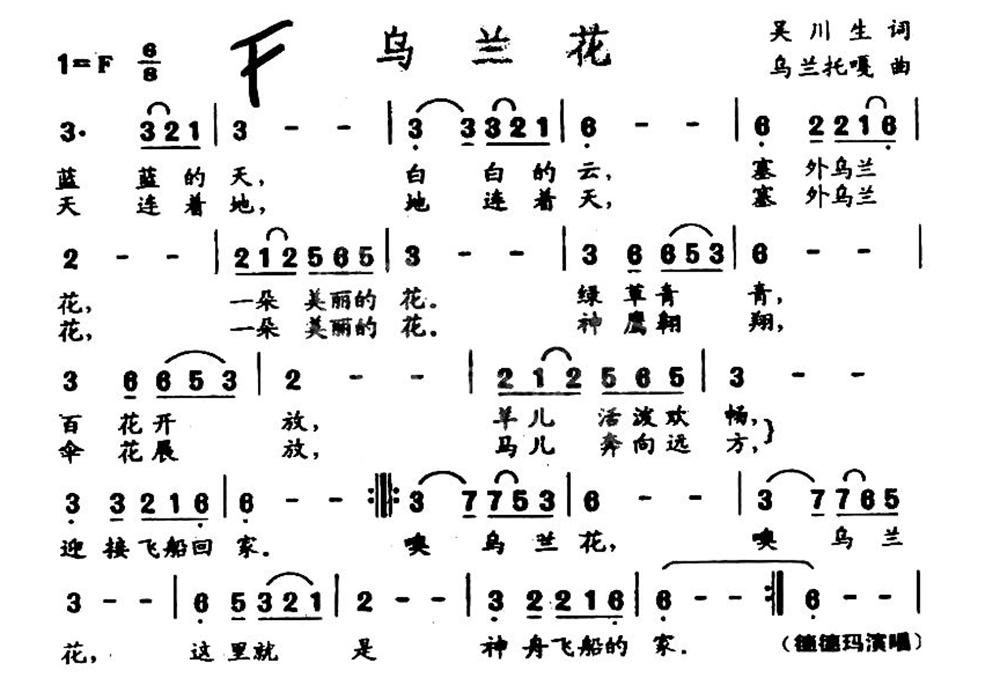 乌兰花
吴川生 词
1=F 6/8 F
乌兰托嘎 曲
3· 321 | 3 - - | 3 3321 | 6 - - | 6 2216
蓝 蓝的天, 白 白的云, 塞 外乌兰
天 连着地, 地 连着天, 塞 外乌兰
2 - - | 212 565 | 3 - - | 3 6 653 | 6 - - |
花, 一朵 美丽的 花。 绿草青 青,
花, 一朵 美丽的 花。 神鹰翱 翔,
3 6 653 | 2 - - | 212 565 | 3 - -
百花开 放, 羊儿 活泼欢 畅,
伞花展 放, 马儿 奔向远 方,}
3 3 216 | 6 - - :||: 3 7753 | 6 - - | 3 7765
迎接飞船回 家. 噢 乌兰花, 噢 乌兰
3 - - | 6 5321 | 2 - - | 3 2216 | 6 - - :|| 6 - |
花, 这里就 是 神舟飞船的 家.
(德德玛演唱)